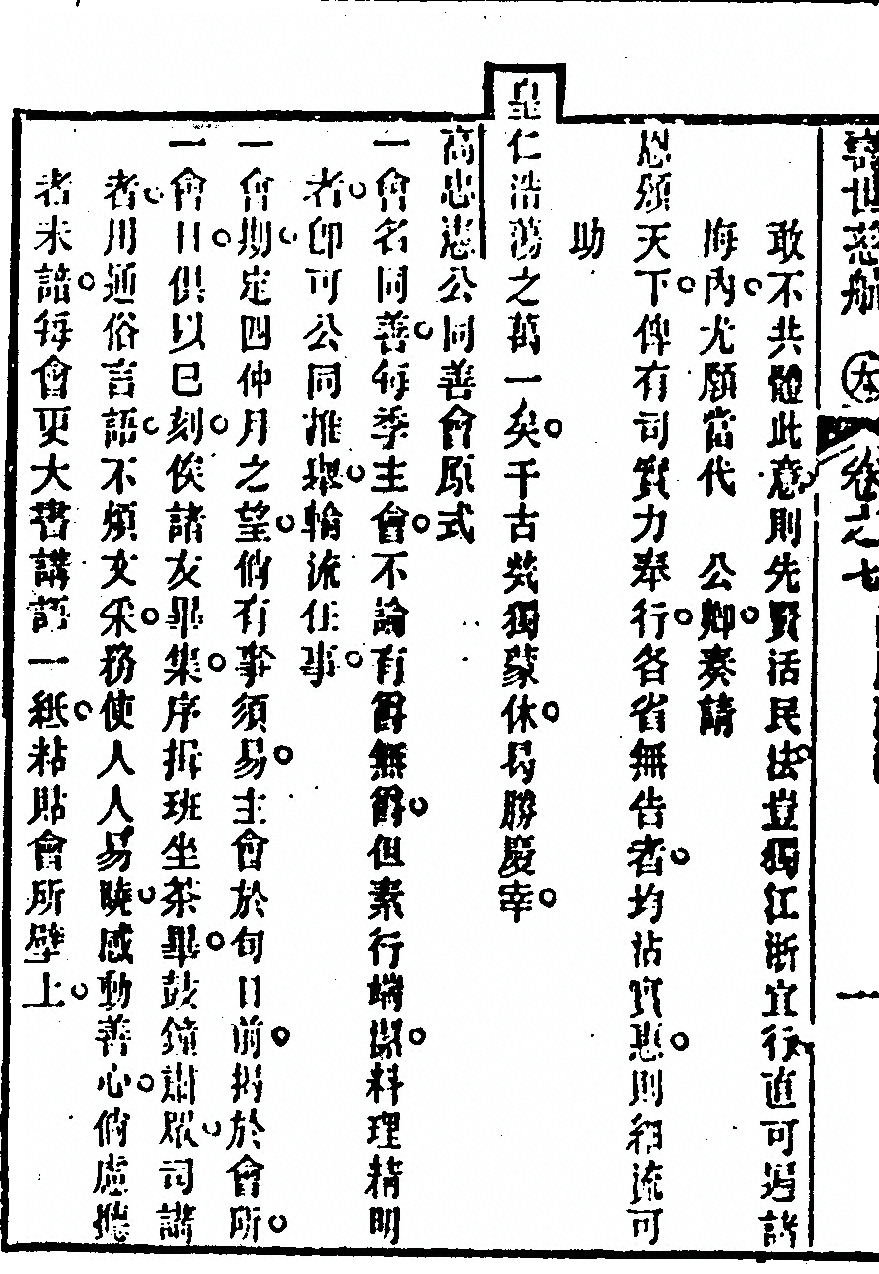 世慈航 卷之七 一
敢不共體此意則先賢活民法豈獨江浙宜行直可遍諸
海內尤願當代 公卿奏請
恩頒天下俾有司實力奉行各省無告者均沾實惠則和流可
助
皇仁浩蕩之萬一矣千古煢獨蒙休曷勝慶幸
高忠憲公同善會原式
一會名同善每季主會不論有爵無爵但素行端潔料理精明
者即可公同推舉輪流任事
一會期定四仲月之望倘有事須易主會於旬日前揭於會所
一會日俱以巳刻俟諸友畢集序揖班坐茶畢鼓鐘肅眾司講
者用通俗言語不煩文采務使人人易曉感動善心倘慮聽
者未諳每會更大書講語一紙粘貼會所壁上